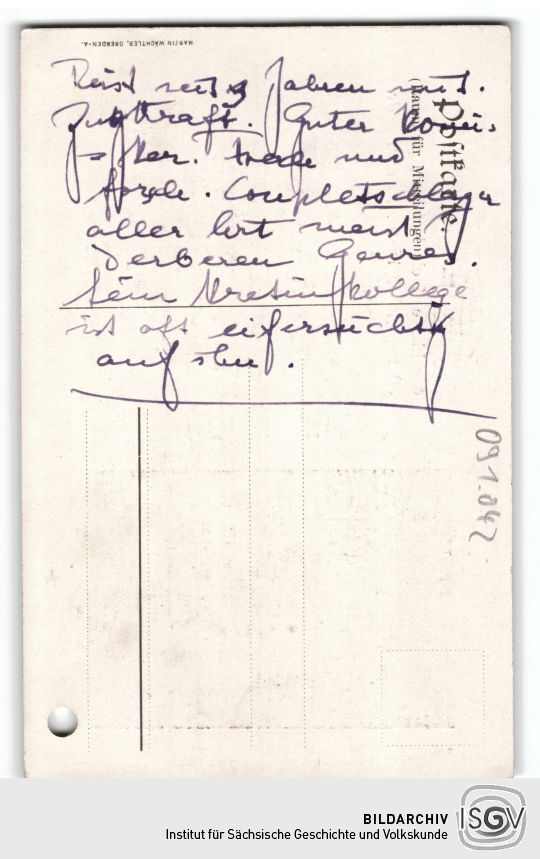 MARTIN WÄCHTLER, DRESDEN-A.
Reist seit 9 Jahren mit
Zugkraft. Guter Komi-
ker.
farale. Coupletschlager
aller Art meist
derberen Genres.
Sein
ist oft eifersüchtig
auf ihn.
Postkarte.
(Raum für Mitteilungen)
091.042
BILDARCHIV
Institut für Sächsische Geschichte und Volkskunde
ISGV